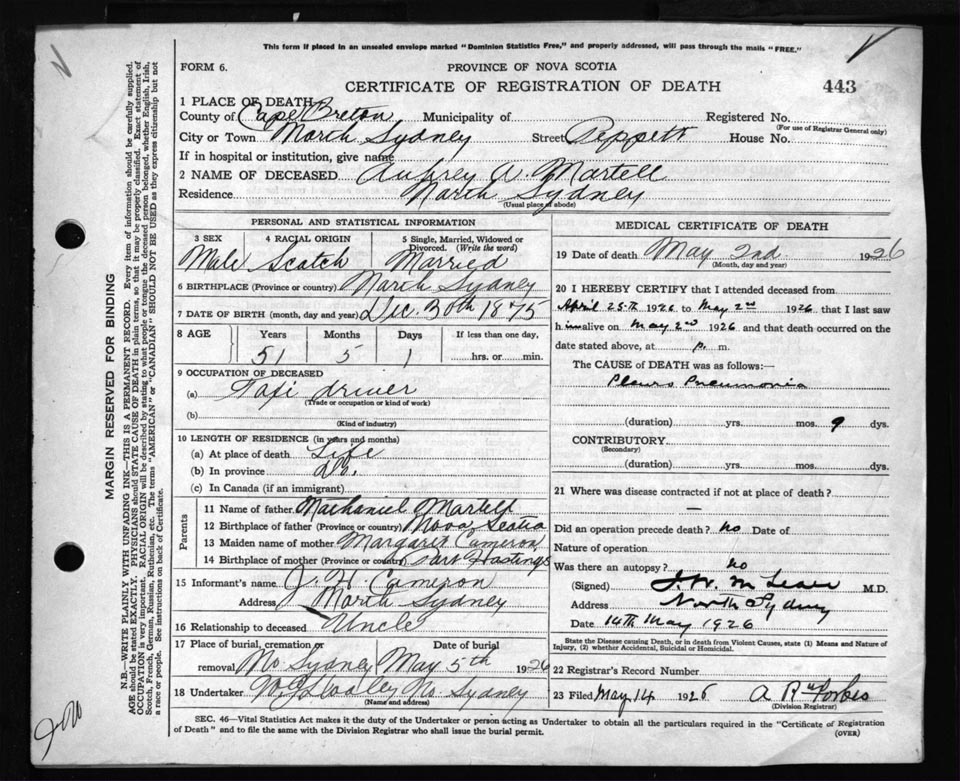 This form if placed in an unsealed envelope marked "Dominion Statistics Free," and properly addressed, will pass through the mails "FREE."
FORM 6.
PROVINCE OF NOVA SCOTIA
CERTIFICATE OF REGISTRATION OF DEATH
443
1 PLACE OF DEATH
County of Cape Breton Municipality of Registered No.
(For use of Registrar General only)
City or Town North Sydney Street Peppett House No.
If in hospital or institution, give name
2 NAME OF DECEASED Aubrey W. Martell
Residence North Sydney
(Usual place of abode)
PERSONAL AND STATISTICAL INFORMATION
3 SEX 4 RACIAL ORIGIN 5 Single, Married, Widowed or Divorced. (Write the word)
Male Scotch Married
6 BIRTHPLACE (Province or country) North Sydney
7 DATE OF BIRTH (month, day and year) Dec. 30th 1875
8 AGE Years Months Days If less than one day,
51 5 1 hrs. or min.
9 OCCUPATION OF DECEASED
(a) Taxi driver
(Trade or occupation or kind of work)
(b)
(Kind of industry)
10 LENGTH OF RESIDENCE (in years and months)
(a) At place of death Life
(b) In province do.
(c) In Canada (if an immigrant)
Parents
11 Name of father Nathaniel Martell
12 Birthplace of father (Province or country) Nova Scotia
13 Maiden name of mother Margaret Cameron
14 Birthplace of mother (Province or country) Port Hastings
15 Informant's name J. H. Cameron
Address North Sydney
16 Relationship to deceased Uncle
17 Place of burial, cremation or removal No Sydney
Date of burial May 5th 1926
18 Undertaker No Sydney
(Name and address)
MEDICAL CERTIFICATE OF DEATH
19 Date of death May 2nd 1926
(Month, day and year)
20 I HEREBY CERTIFY that I attended deceased from
April 25th 1926 to May 2nd 1926 that I last saw
him alive on May 2nd 1926 and that death occurred on
date stated above, at p. m.
The CAUSE of DEATH was as follows:—
Pleuro Pneumonia
(duration) yrs. mos. 9 dys.
CONTRIBUTORY
(Secondary)
(duration) yrs. mos. dys.
21 Where was disease contracted if not at place of death?
—
Did an operation precede death? no Date of
Nature of operation
Was there an autopsy? no
(Signed) M.D.
Address North Sydney
Date 14th May 1926
State the Disease causing Death, or in death from Violent Causes, state (1) Means and Nature of Injury, (2) whether Accidental, Suicidal or Homicidal.
22 Registrar's Record Number
23 Filed May 14 1926 Forbes
(Division Registrar)
SEC. 46—Vital Statistics Act makes it the duty of the Undertaker or person acting as Undertaker to obtain all the particulars required in the "Certificate of Registration
of Death" and to file the same with the Division Registrar who shall issue the burial permit.
(OVER)
MARGIN RESERVED FOR BINDING
N.B.—WRITE PLAINLY WITH UNFADING INK—THIS IS A PERMANENT RECORD. Every item of information should be carefully supplied.
AGE should be stated EXACTLY. PHYSICIANS should STATE CAUSE OF DEATH in plain terms, so that it may be properly classified. Exact statement of
OCCUPATION is very important. RACIAL ORIGIN will be described by stating to what people or tongue the deceased person belonged, whether English, Irish,
Scotch, French, German, Russian, Ruthenian, etc. The terms "AMERICAN" or "CANADIAN" SHOULD NOT BE USED as they express citizenship but not
a race or people. See instructions on back of Certificate.